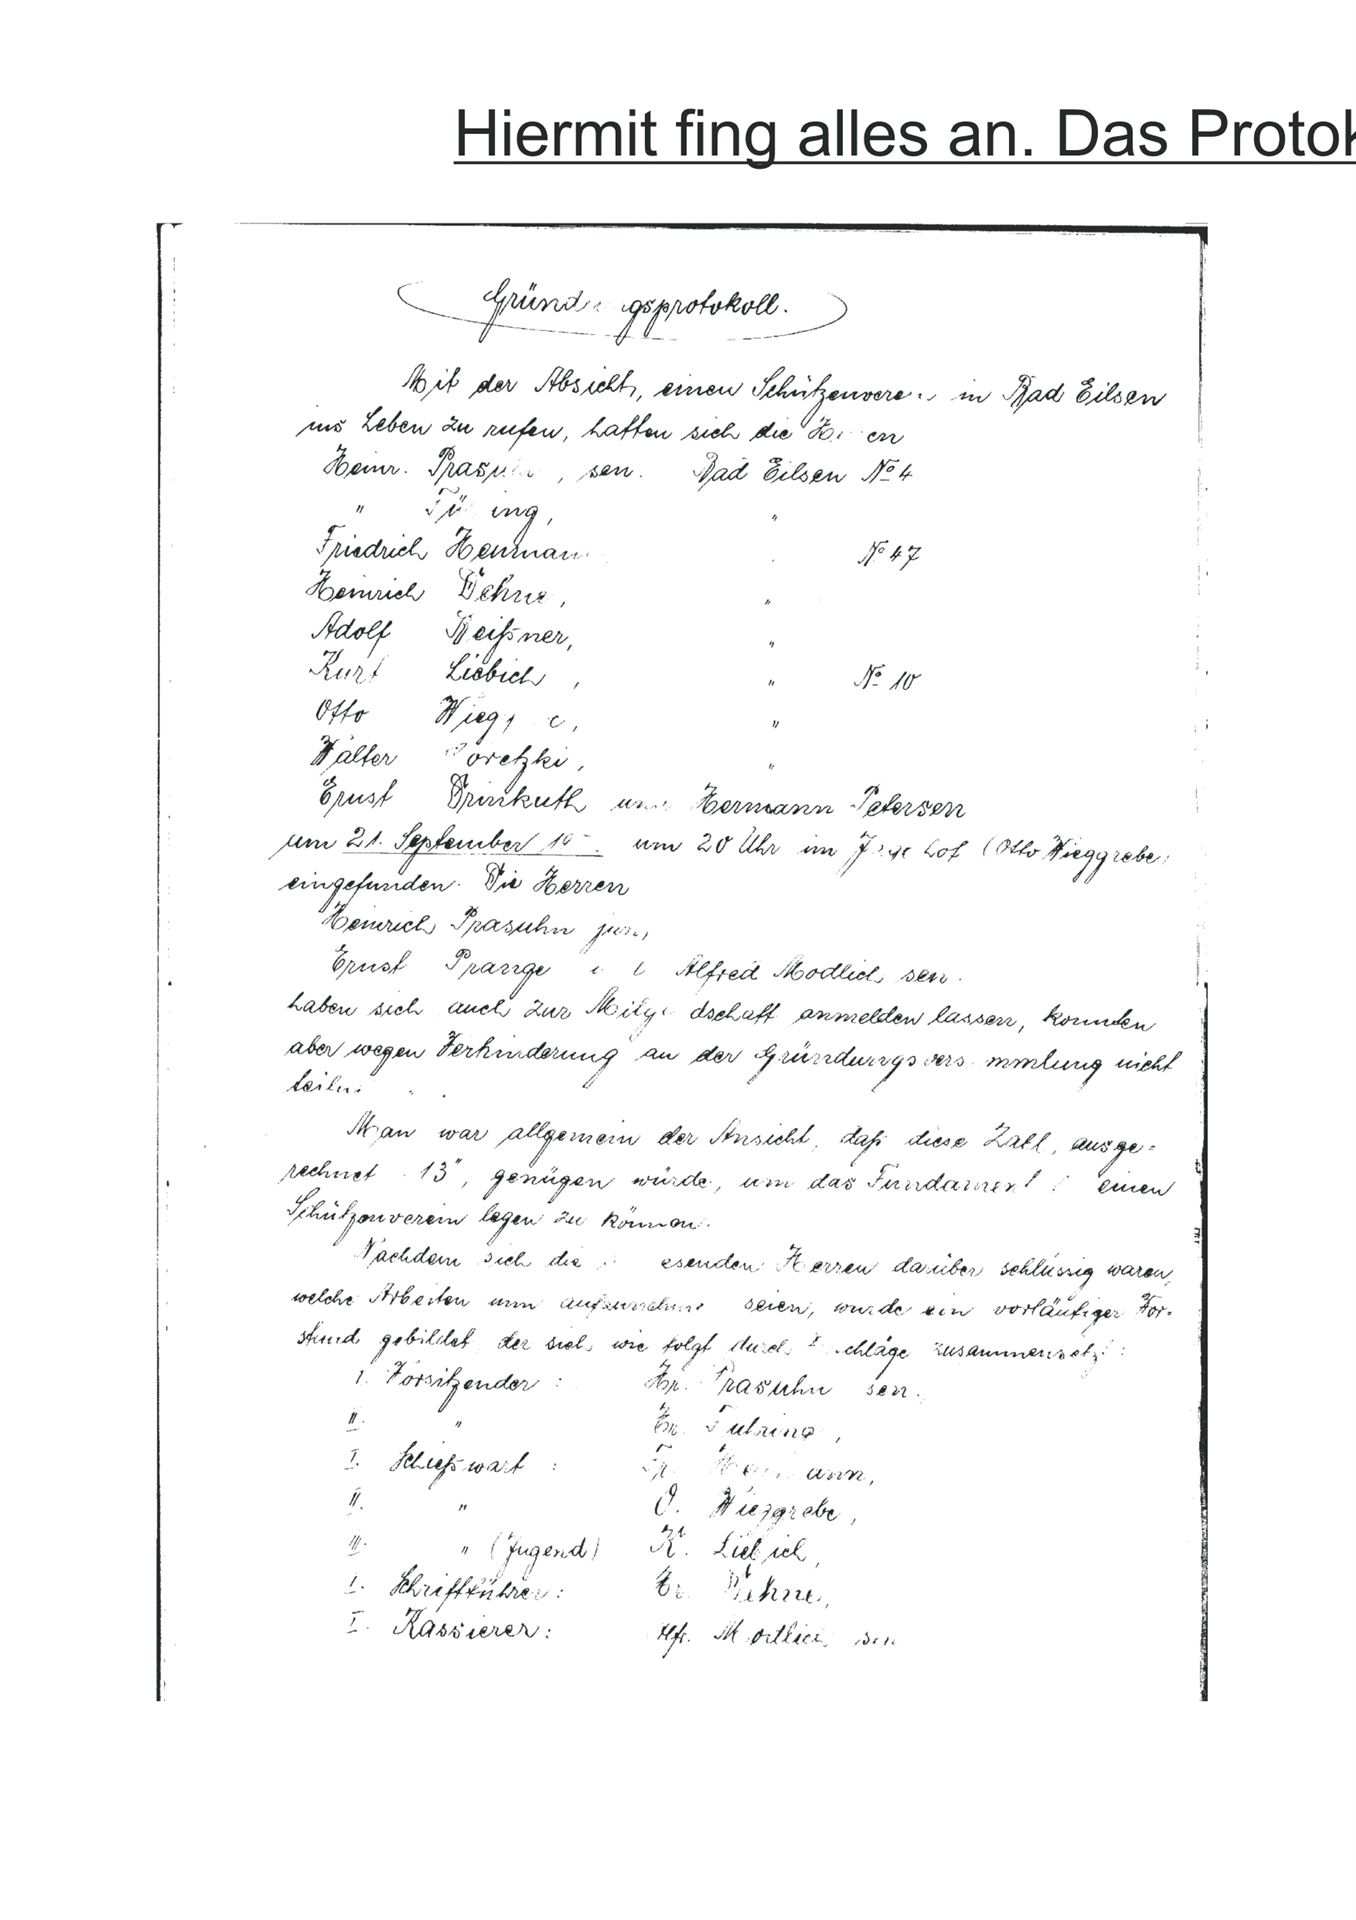 Hiermit fing alles an. Das Protok
Gründungsprotokoll.
Mit der Absicht, einen Schützenverein in Bad Eilsen
ins Leben zu rufen, hatten sich die Herren
Heinr. Prasuhn, sen. Bad Eilsen No 4
" "
Friedrich No 47
Heinrich Dehne, "
Adolf Reißner, "
Kurt Liebich, " No 10
Otto "
Walter "
Ernst Drinkuth und Hermann Petersen
um 21. September um 20 Uhr im (Otto Wieggrebe)
eingefunden. Die Herren
Heinrich Prasuhn jun,
Ernst Prange Alfred Modlich sen.
haben sich auch zur Mitgliedschaft anmelden lassen, konnten
aber wegen Verhinderung an der Gründungsversammlung nicht
Man war allgemein der Ansicht, daß diese Zahl, ausge-
rechnet "13", genügen würde, um das Fundament einen
Schützenverein legen zu können.
Nachdem sich die Herren darüber schlüssig waren,
welche Arbeiten nun seien, wurde ein vorläufiger Vor-
stand gebildet, der sich wie folgt durch Vorschläge zusammensetzt:
1. Vorsitzender: Hr. Prasuhn sen.
II. " Hr. Führing,
I. Schießwart:
II. " O. Wieggrebe,
III. " (Jugend) K. Liebich,
I. Schriftführer: Hr. Dehne,
I. Kassierer: Alfr. Modlich sen